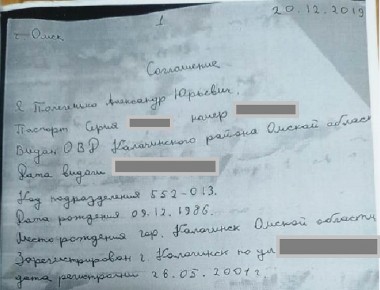 г. Омск 1 20.12.2019
Соглашение
Я Александр Юрьевич,
Паспорт Серия номер
Выдан ОВД Калачинского района Омской области
Дата выдачи
Код подразделения 552-013.
Дата рождения 09.12.1986.
Место рождения гор. Калачинск Омской области
Зарегистрирован г. Калачинск по ул
дата регистрации 26.05.2001г